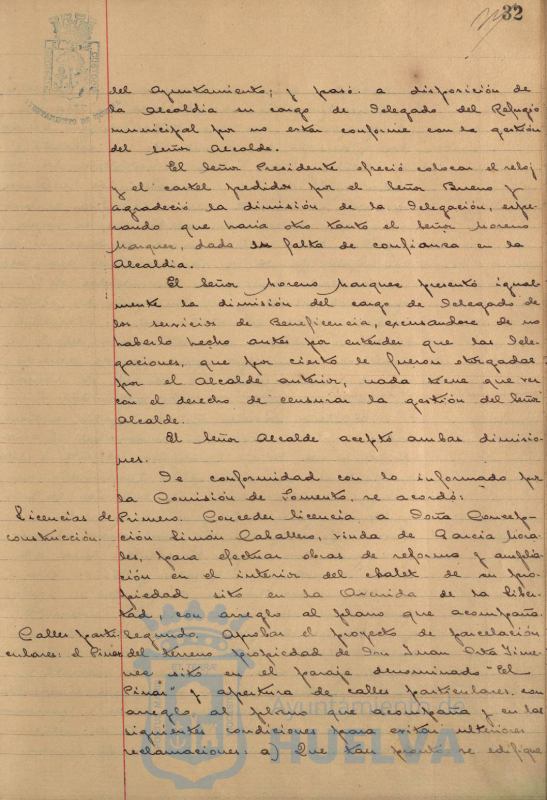 32
del Ayuntamiento; y pasó a disposición de
la Alcaldia su cargo de Delegado del Refugio
municipal por no estar conforme con la gestión
del Señor Alcalde.
El Señor Presidente ofreció colocar el reloj
y el cartel pedidos por el Señor Bueno y
agradeció la dimisión de la Delegación, espe-
rando que haria otro tanto el Señor Moreno
Marquez, dada su falta de confianza en la
Alcaldia.
El Señor Moreno Marquez presentó igual
mente la dimisión del cargo de Delegado de
los servicios de Beneficencia, excusandose de no
haberlo hecho antes por entender que las Dele-
gaciones, que por cierto le fueron otorgadas
por el Alcalde anterior, nada tiene que ver
con el derecho de censurar la gestión del Señor
Alcalde.
El Señor Alcalde aceptó ambas dimisio-
nes.
De conformidad con lo informado por
la Comisión de Fomento, se acordó:
Licencias de
construcción.
Primero. Conceder licencia a Doña Concep-
ción Limón Caballero, viuda de Garcia Mora-
les, para efectuar obras de reforma y amplia-
ción en el interior del chalet de su pro-
piedad sito en la Avenida de la Liber-
tad, con arreglo al plano que acompaña.
Calles parti-
culares: el Pinar
Segundo. Aprobar el proyecto de parcelación
del terreno propiedad de Don Juan Orta Jime-
nez sito en el paraje denominado "El
Pinar" y apertura de calles particulares, con
arreglo al plano que acompaña y en las
siguientes condiciones para evitar ulteriores
reclamaciones: a) Que tan pronto se edifique
Ayuntamiento de
HUELVA